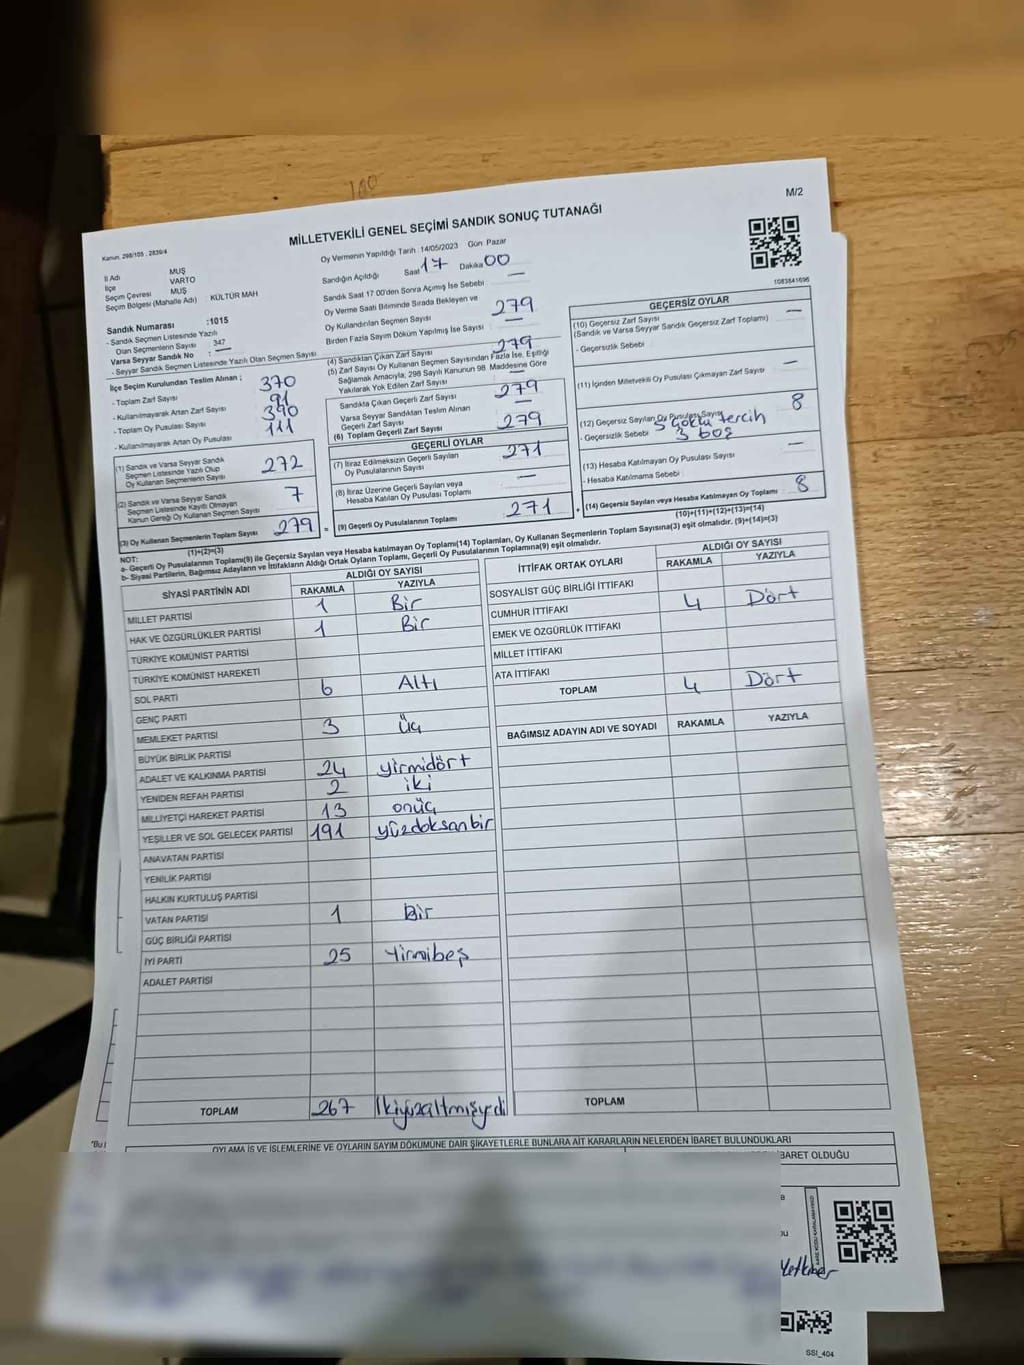 M/2
Kanun, 298/105 , 2839/4
MİLLETVEKİLİ GENEL SEÇİMİ SANDIK SONUÇ TUTANAĞI
İl Adı MUŞ
İlçe VARTO
Seçim Çevresi MUŞ
Seçim Bölgesi (Mahalle Adı) : KÜLTÜR MAH
Sandık Numarası :1015
- Sandık Seçmen Listesinde Yazılı
Olan Seçmenlerin Sayısı 347
Varsa Seyyar Sandık No : —
- Seyyar Sandık Seçmen Listesinde Yazılı Olan Seçmen Sayısı
Oy Vermenin Yapıldığı Tarih 14/05/2023 Gün Pazar
Sandığın Açıldığı Saat 17 Dakika 00
Sandık Saat 17:00'den Sonra Açılmış İse Sebebi —
Oy Verme Saati Bitiminde Sırada Bekleyen ve
Oy Kullandırılan Seçmen Sayısı 279
Birden Fazla Sayım Döküm Yapılmış İse Sayısı —
1083641696
İlçe Seçim Kurulundan Teslim Alınan ;
- Toplam Zarf Sayısı 370
- Kullanılmayarak Artan Zarf Sayısı 91
- Toplam Oy Pusulası Sayısı 390
- Kullanılmayarak Artan Oy Pusulası 111
(1) Sandık ve Varsa Seyyar Sandık
Seçmen Listesinde Yazılı Olup
Oy Kullanan Seçmenlerin Sayısı 272
(2) Sandık ve Varsa Seyyar Sandık
Seçmen Listesinde Kayıtlı Olmayan
Kanun Gereği Oy Kullanan Seçmen Sayısı 7
(3) Oy Kullanan Seçmenlerin Toplam Sayısı 279
(1)+(2)=(3)
(4) Sandıktan Çıkan Zarf Sayısı 279
(5) Zarf Sayısı Oy Kullanan Seçmen Sayısından Fazla İse, Eşitliği
Sağlamak Amacıyla, 298 Sayılı Kanunun 98. Maddesine Göre
Yakılarak Yok Edilen Zarf Sayısı —
Sandıkta Çıkan Geçerli Zarf Sayısı 279
Varsa Seyyar Sandıktan Teslim Alınan
Geçerli Zarf Sayısı —
(6) Toplam Geçerli Zarf Sayısı 279
GEÇERLİ OYLAR
(7) İtiraz Edilmeksizin Geçerli Sayılan
Oy Pusulalarının Sayısı 271
(8) İtiraz Üzerine Geçerli Sayılan veya
Hesaba Katılan Oy Pusulası Toplamı —
(9) Geçerli Oy Pusulalarının Toplamı :271
GEÇERSİZ OYLAR
(10) Geçersiz Zarf Sayısı —
(Sandık ve Varsa Seyyar Sandık Geçersiz Zarf Toplamı)
- Geçersizlik Sebebi
(11) İçinden Milletvekili Oy Pusulası Çıkmayan Zarf Sayısı —
(12) Geçersiz Sayılan Oy Pusulası Sayısı 8
- Geçersizlik Sebebi 5 çoklu tercih
3 boş
(13) Hesaba Katılmayan Oy Pusulası Sayısı —
- Hesaba Katılmama Sebebi
(14) Geçersiz Sayılan veya Hesaba Katılmayan Oy Toplamı 8
(10)+(11)+(12)+(13)=(14)
NOT:
a- Geçerli Oy Pusulalarının Toplamı(9) ile Geçersiz Sayılan veya Hesaba katılmayan Oy Toplamı(14) Toplamları, Oy Kullanan Seçmenlerin Toplam Sayısına(3) eşit olmalıdır. (9)+(14)=(3)
b- Siyasi Partilerin, Bağımsız Adayların ve İttifakların Aldığı Ortak Oyların Toplamı, Geçerli Oy Pusulalarının Toplamına(9) eşit olmalıdır.
SİYASİ PARTİNİN ADI ALDIĞI OY SAYISI
RAKAMLA YAZIYLA
MİLLET PARTİSİ 1 Bir
HAK VE ÖZGÜRLÜKLER PARTİSİ 1 Bir
TÜRKİYE KOMÜNİST PARTİSİ
TÜRKİYE KOMÜNİST HAREKETİ
SOL PARTİ 6 Altı
GENÇ PARTİ
MEMLEKET PARTİSİ 3 Üç
BÜYÜK BİRLİK PARTİSİ
ADALET VE KALKINMA PARTİSİ 24 yirmidört
YENİDEN REFAH PARTİSİ 2 iki
MİLLİYETÇİ HAREKET PARTİSİ 13 onüç
YEŞİLLER VE SOL GELECEK PARTİSİ 191 yüzdoksanbir
ANAVATAN PARTİSİ
YENİLİK PARTİSİ
HALKIN KURTULUŞ PARTİSİ
VATAN PARTİSİ 1 Bir
GÜÇ BİRLİĞİ PARTİSİ
İYİ PARTİ 25 Yirmibeş
ADALET PARTİSİ
TOPLAM 267 İkiyüzaltmışyedi
İTTİFAK ORTAK OYLARI ALDIĞI OY SAYISI
RAKAMLA YAZIYLA
SOSYALİST GÜÇ BİRLİĞİ İTTİFAKI
CUMHUR İTTİFAKI 4 Dört
EMEK VE ÖZGÜRLÜK İTTİFAKI
MİLLET İTTİFAKI
ATA İTTİFAKI
TOPLAM 4 Dört
BAĞIMSIZ ADAYIN ADI VE SOYADI RAKAMLA YAZIYLA
TOPLAM
OYLAMA İŞ VE İŞLEMLERİNE VE OYLARIN SAYIM DÖKÜMÜNE DAİR ŞİKAYETLERLE BUNLARA AİT KARARLARIN NELERDEN İBARET BULUNDUKLARI
BARET OLDUĞU
SSI_404